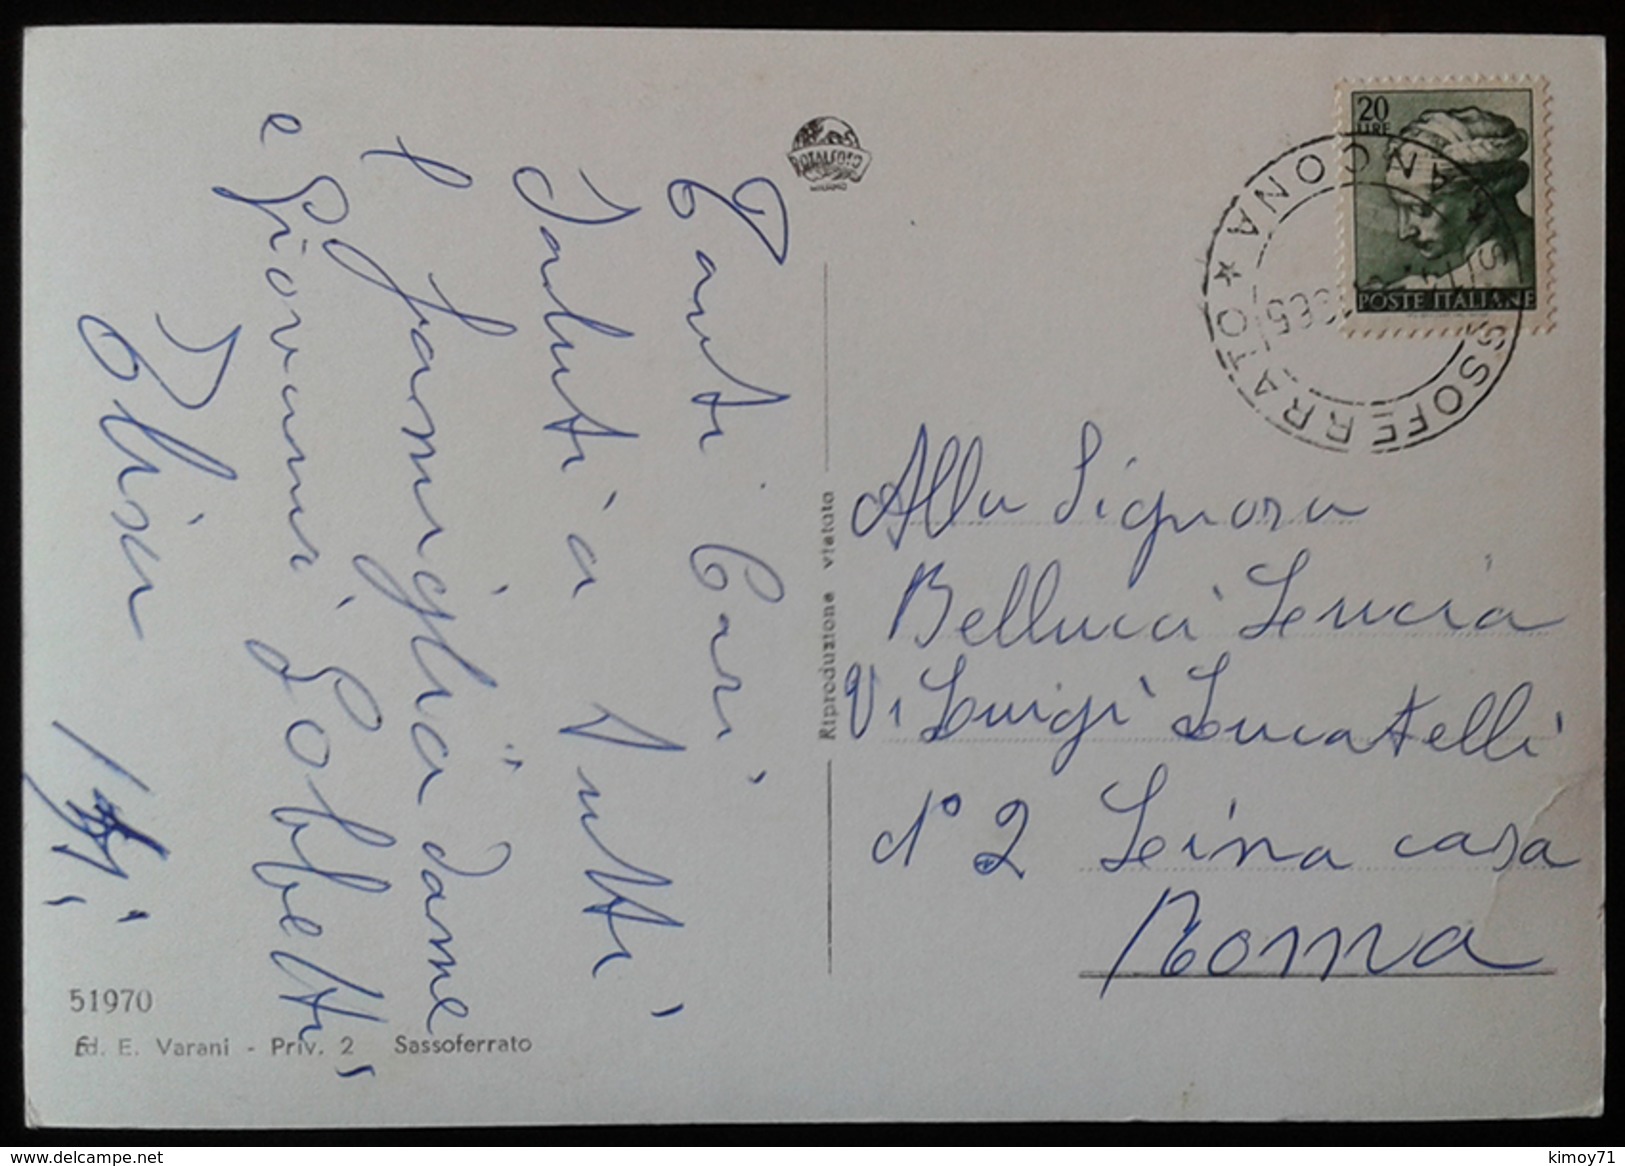 Tanti Cari
Saluti a tutti
e famiglia
e Giovanni Gobbetti
Elisa
ROTALFOTO
MILANO
20
LIRE
POSTE ITALIANE
SASSOFERRATO ★ ANCONA ★
Alla Signora
Bellucci Lucia
Vi Luigi Lucatelli
n° 2 casa
Roma
Riproduzione vietata
51970
Ed. E. Varani - Priv. 2 Sassoferrato
www.delcampe.net
kimoy71